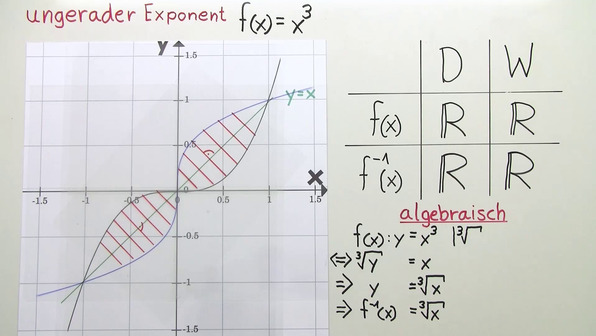 ungerader Exponent f(x) = x³
y
1.5
1
y=x
0.5
0
x
-1.5 -1 -0.5 0 0.5 1 1.5
-0.5
-1
-1.5
D W
f(x) ℝ ℝ
f⁻¹(x) ℝ ℝ
algebraisch
f(x): y = x³ |∛
⇔ ∛y = x
⇒ y = ∛x
⇒ f⁻¹(x) = ∛x